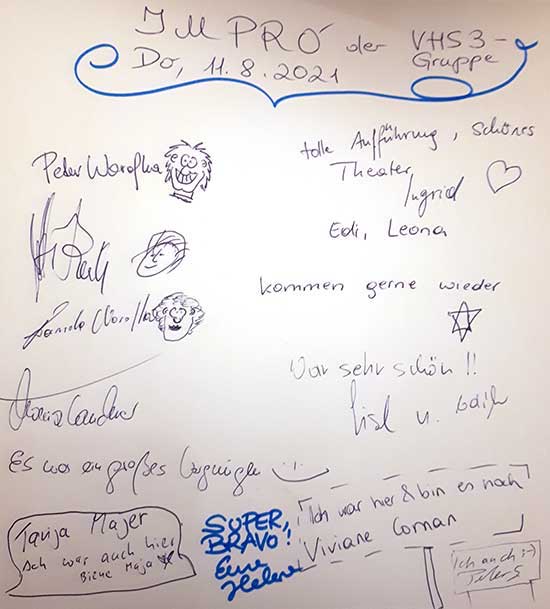 IMPRÓ der VHS3-Gruppe
Do, 11.8.2021
Peter Worofka
tolle Aufführung, schönes
Theater,
Ingrid
Edi, Leona
kommen gerne wieder
War sehr schön!!
Lisl u.
Es war ein großes Vergnügen :-)
Tanja Majer
Ich war auch hier
Biene Maja
SUPER,
BRAVO!
Eure
Helene
Ich war hier & bin es noch
Viviane Coman
Ich auch :-)